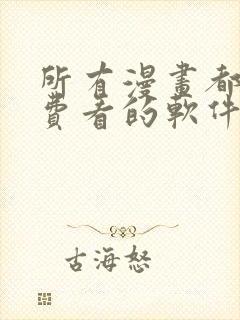 所有漫畫都
費看的軟件
古海怒